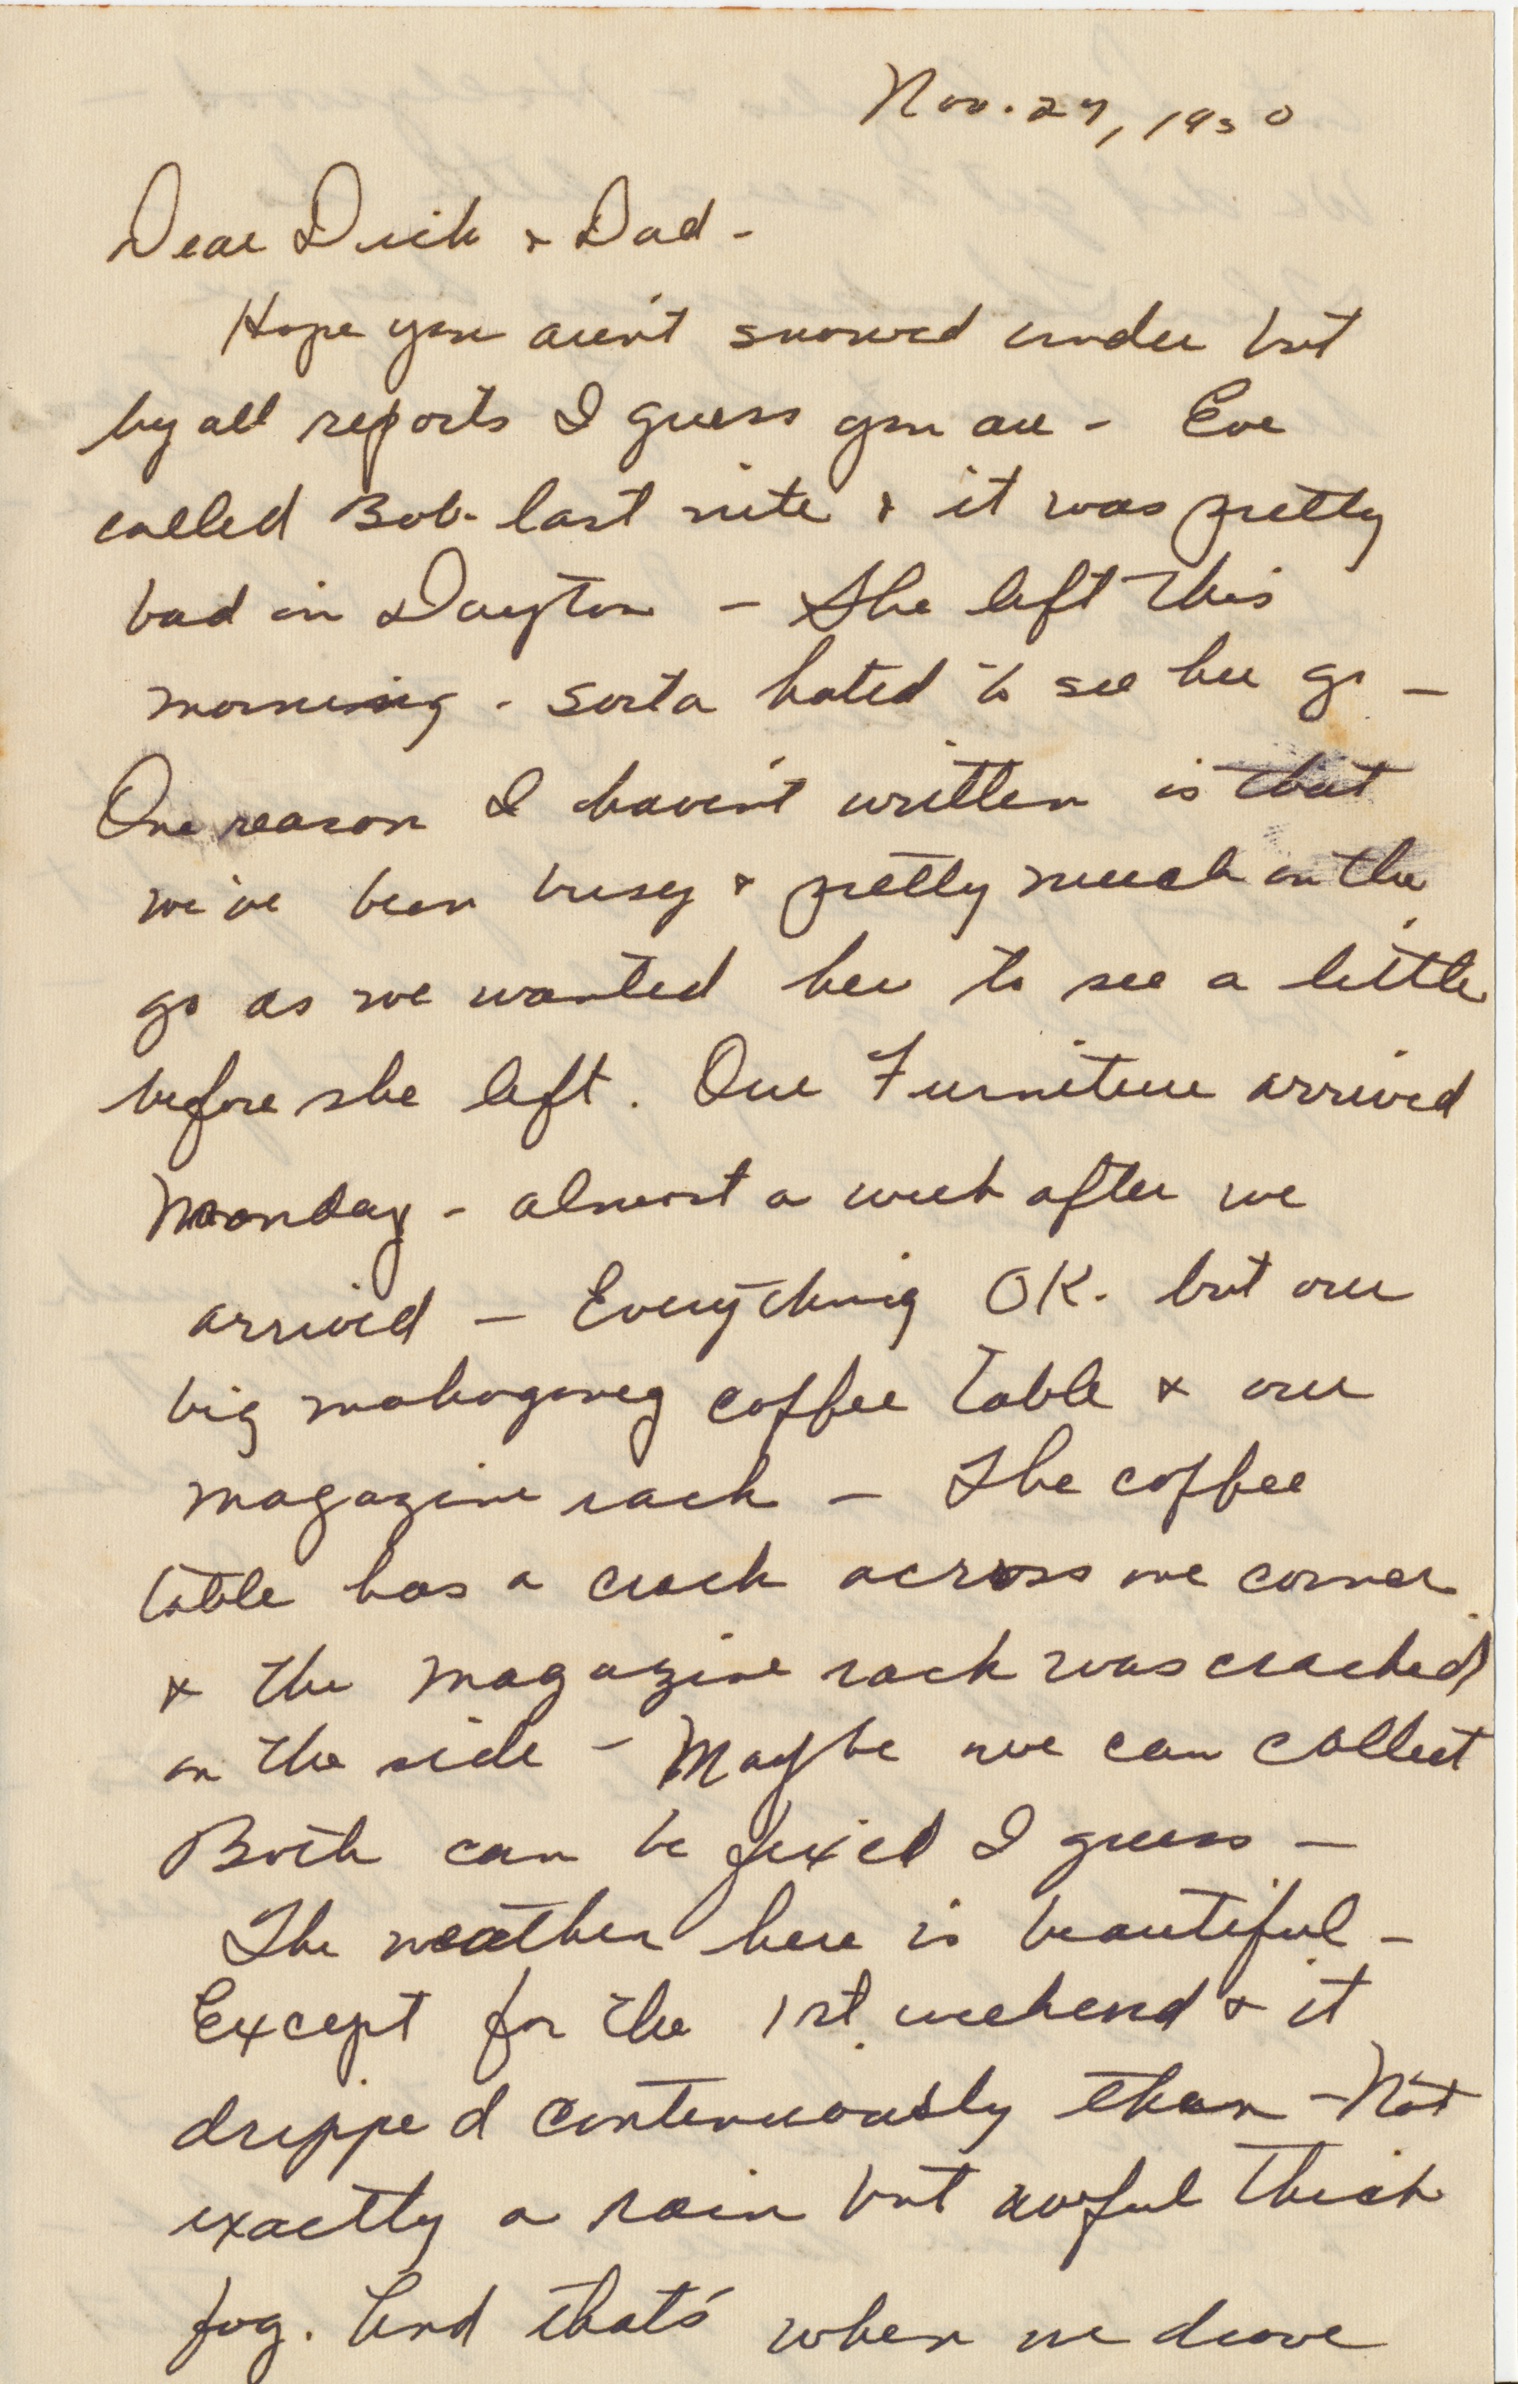 Nov. 27, 1950
Dear Dick & Dad -
Hope you aren't snowed under but
by all reports I guess you are - Eve
called Bob last nite & it was pretty
bad in Dayton - She left this
morning - sorta hated to see her go -
One reason I haven't written is that
we've been busy & pretty much on the
go as we wanted her to see a little
before she left. Our Furniture arrived
Monday - almost a week after we
arrived - Everything OK. but our
big mahogany coffee table & our
magazine rack - The coffee
table has a crack across one corner
& the magazine rack was cracked
on the side - Maybe we can collect
Both can be fixed I guess -
The weather here is beautiful -
Except for the 1st weekend & it
dripped continuously then - Not
exactly a rain but awful thick
fog. And that's when we drove